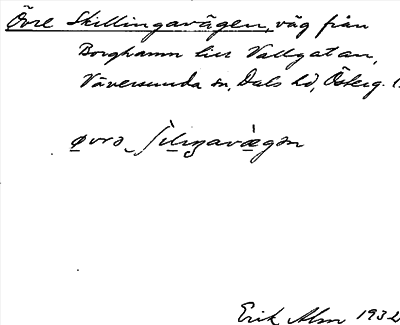 Övre Skillingavägen, väg från
Borghamn till Vallgatan,
Väversunda sn, Dals hd, Österg. l
øvrə ʃiliŋavægən
Erik Alm 1932